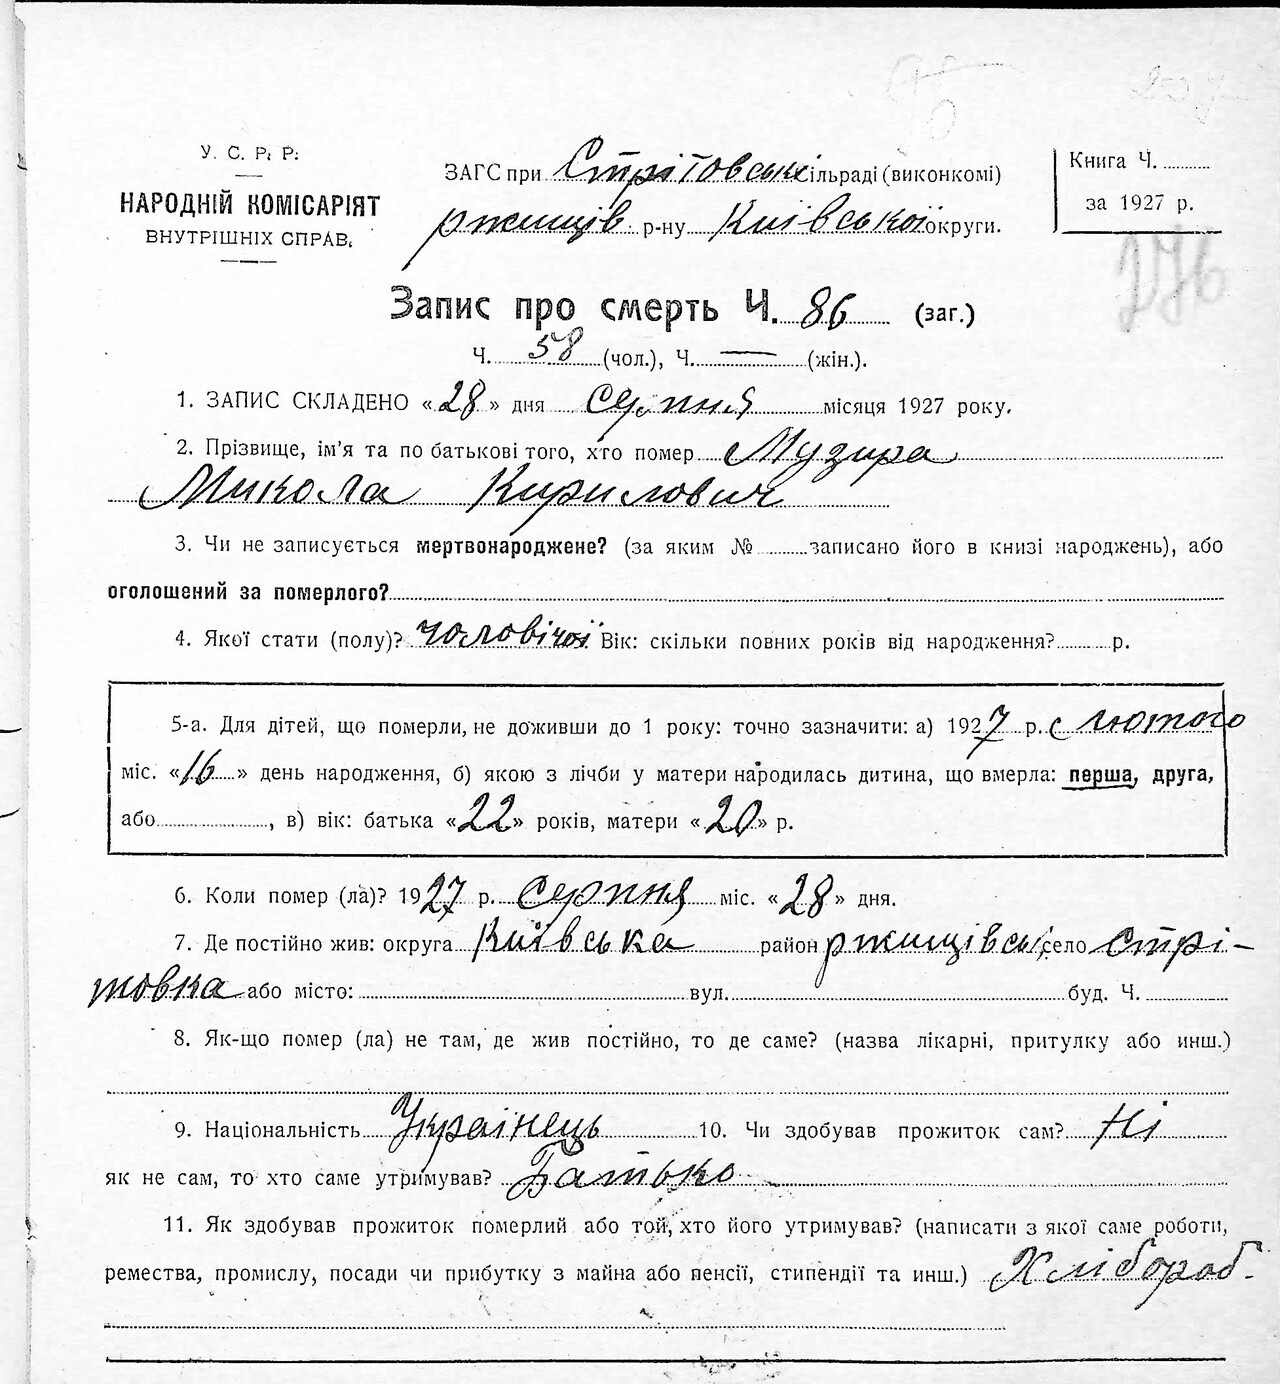 У. С. Р. Р.
НАРОДНІЙ КОМІСАРІЯТ
ВНУТРІШНІХ СПРАВ.
ЗАГС при Стрітовські сільраді (виконкомі)
ржищів р-ну Київської округи.
Книга Ч.
за 1927 р.
276
Запис про смерть Ч. 86 (заг.)
Ч. 58 (чол.), Ч. — (жін.).
1. ЗАПИС СКЛАДЕНО «28» дня серпня місяця 1927 року.
2. Прізвище, ім'я та по батькові того, хто помер Музира
Микола Кирилович
3. Чи не записується мертвонароджене? (за яким № записано його в книзі народжень), або
оголошений за померлого?
4. Якої стати (полу)? чоловічої Вік: скільки повних років від народження? р.
5-а. Для дітей, що померли, не доживши до 1 року: точно зазначити: а) 1927 р. лютого
міс. «16» день народження, б) якою з лічби у матери народилась дитина, що вмерла: перша, друга,
або , в) вік: батька «22» років, матери «20» р.
6. Коли помер (ла)? 1927 р. серпня міс. «28» дня.
7. Де постійно жив: округа Київська район ржищівські село Стрі-
товка або місто: вул. буд. Ч.
8. Як-що помер (ла) не там, де жив постійно, то де саме? (назва лікарні, притулку або инш.)
9. Національність Українець 10. Чи здобував прожиток сам? Ні
як не сам, то хто саме утримував? Батько
11. Як здобував прожиток померлий або той, хто його утримував? (написати з якої саме роботи,
ремества, промислу, посади чи прибутку з майна або пенсії, стипендії та инш.) Хлібороб.